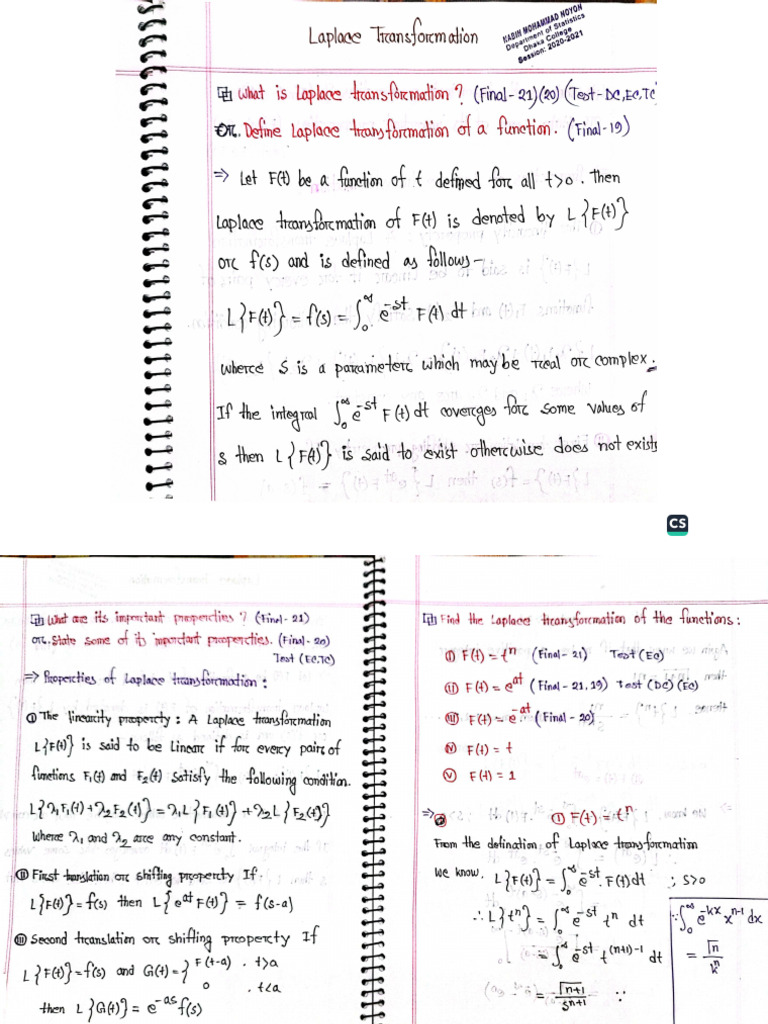 Laplace Transformation
NABIN MOHAMMAD NOYON
Department of Statistics
Dhaka College
Session: 2020-2021
What is Laplace transformation? (Final-21)(20) (Test-DC,EC,TC)
Or. Define Laplace transformation of a function. (Final-19)
⇒ Let F(t) be a function of t defined for all t>0. Then
Laplace transformation of F(t) is denoted by L{F(t)}
or f(s) and is defined as follows-
L{F(t)} = f(s) = ∫₀^∞ e^-st F(t) dt
where S is a parameter which may be real or complex.
If the integral ∫₀^∞ e^-st F(t) dt coverges for some values of
s then L{F(t)} is said to exist otherwise does not exists
CS
What are its important properties? (Final-21)
or. State some of its important properties. (Final-20)
Test (EC,TC)
⇒ Properties of Laplace transformation:
(i) The linearity property: A Laplace transformation
L{F(t)} is said to be Linear if for every pairs of
functions F₁(t) and F₂(t) satisfy the following condition.
L{λ₁F₁(t)+λ₂F₂(t)} = λ₁L{F₁(t)}+λ₂L{F₂(t)}
where λ₁ and λ₂ are any constant.
(ii) First translation or shifting property If
L{F(t)} = f(s) then L{e^at F(t)} = f(s-a)
(iii) Second translation or shifting property If
L{F(t)} = f(s) and G(t) = { F(t-a) . t>a
0 . t<a
then L{G(t)} = e^-as f(s)
Find the Laplace transformation of the functions:
(i) F(t) = t^n (Final-21) Test (EC)
(ii) F(t) = e^at (Final-21,19) Test (DC)(EC)
(iii) F(t) = e^-at (Final-20)
(iv) F(t) = t
(v) F(t) = 1
⇒ (i) F(t) = t^n
From the defination of Laplace transformation
we know. L{F(t)} = ∫₀^∞ e^-st. F(t) dt ; s>0
∴ L{t^n} = ∫₀^∞ e^-st t^n dt
= ∫₀^∞ e^-st t^(n+1)-1 dt
= Γn+1 / s^n+1 ∵
∵ ∫₀^∞ e^-kx x^n-1 dx
= Γn / k^n